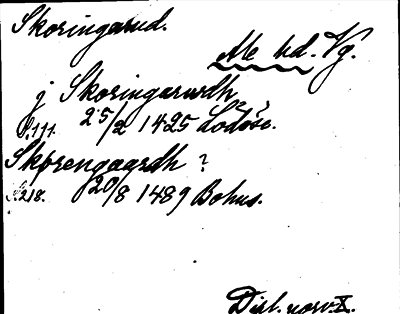 Skoringarud.
Ale hd. Vg.
j Skoringarudh
S.111. 25/2 1425 Lödöse.
Skørengaardh ?
S.218. 20/8 1489 Bohus.
Dipl. norv. X.